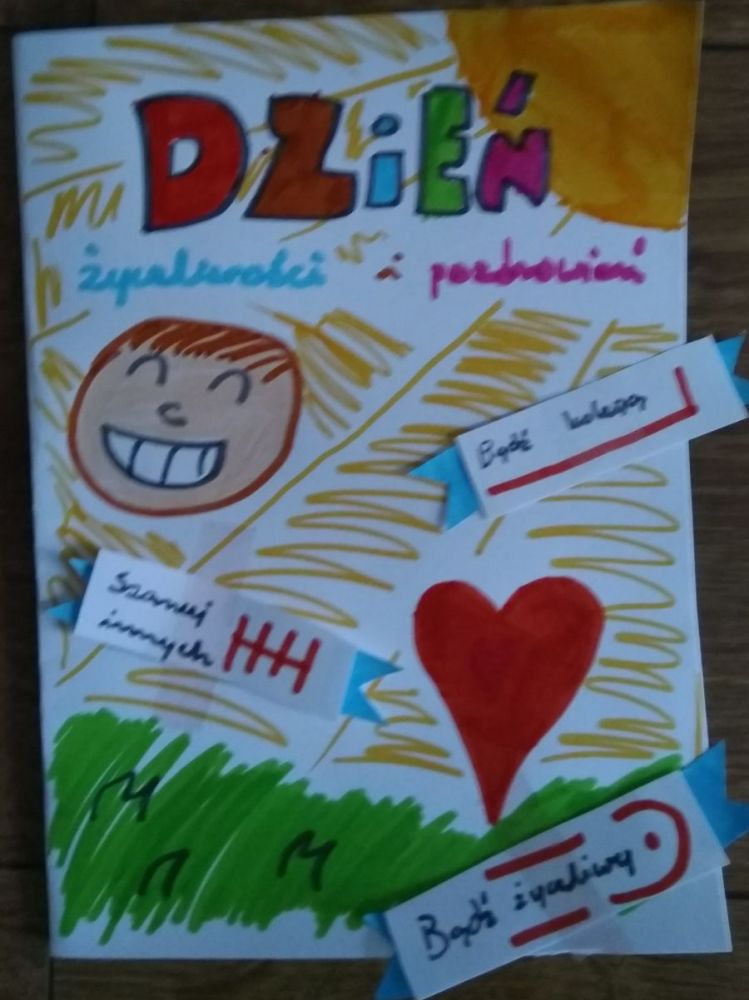 DZiEŃ
życzliwości i pozdrowień
Bądź kolegą
Szanuj
innych
Bądź życzliwy